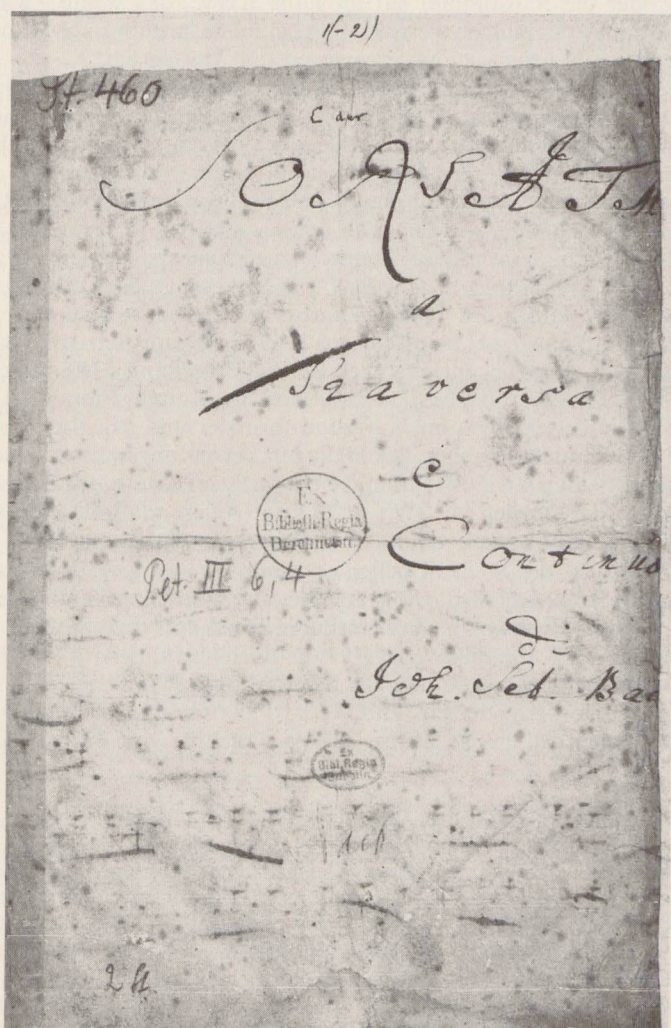 1(-2)
St. 460
C dur
SONATA
a
Traversa
e
Continuo
di
Joh. Seb. Bac
Ex
Biblioth. Regia
Berolinensi.
Pet. III 6,4
Ex
Bibl. Regia
Berolin.